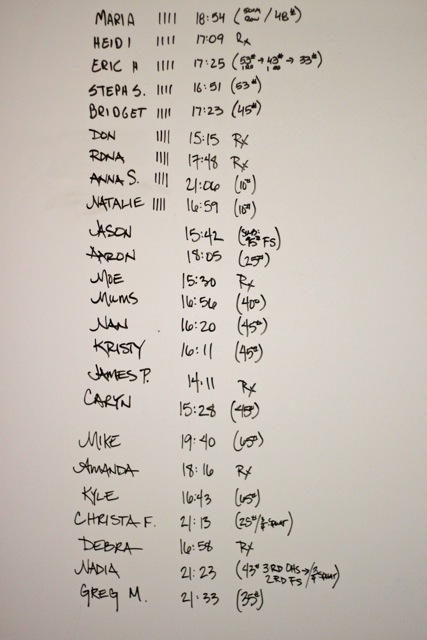 MARIA IIII 18:54 (500m ROW / 48#)
HEIDI IIII 17:09 Rx
ERIC H IIII 17:25 (53# → 43# → 33#)
STEPH S. IIII 16:51 (53#)
BRIDGET IIII 17:23 (45#)
DON IIII 15:15 Rx
RONA IIII 17:48 Rx
ANNA S. IIII 21:06 (10#)
NATALIE IIII 16:59 (18#)
JASON 15:42 (SUB: 95# FS)
AARON 18:05 (25#)
MOE 15:30 Rx
MUMS 16:56 (40#)
NAN 16:20 (45#)
KRISTY 16:11 (45#)
JAMES P. 14:11 Rx
CARYN 15:28 (45#)
MIKE 19:40 (65#)
AMANDA 18:16 Rx
KYLE 16:43 (65#)
CHRISTA F. 21:13 (25#/
DEBRA 16:58 Rx
NADIA 21:23 (43# 3RD OHS →/
2RD FS
GREG M. 21:33 (35#)